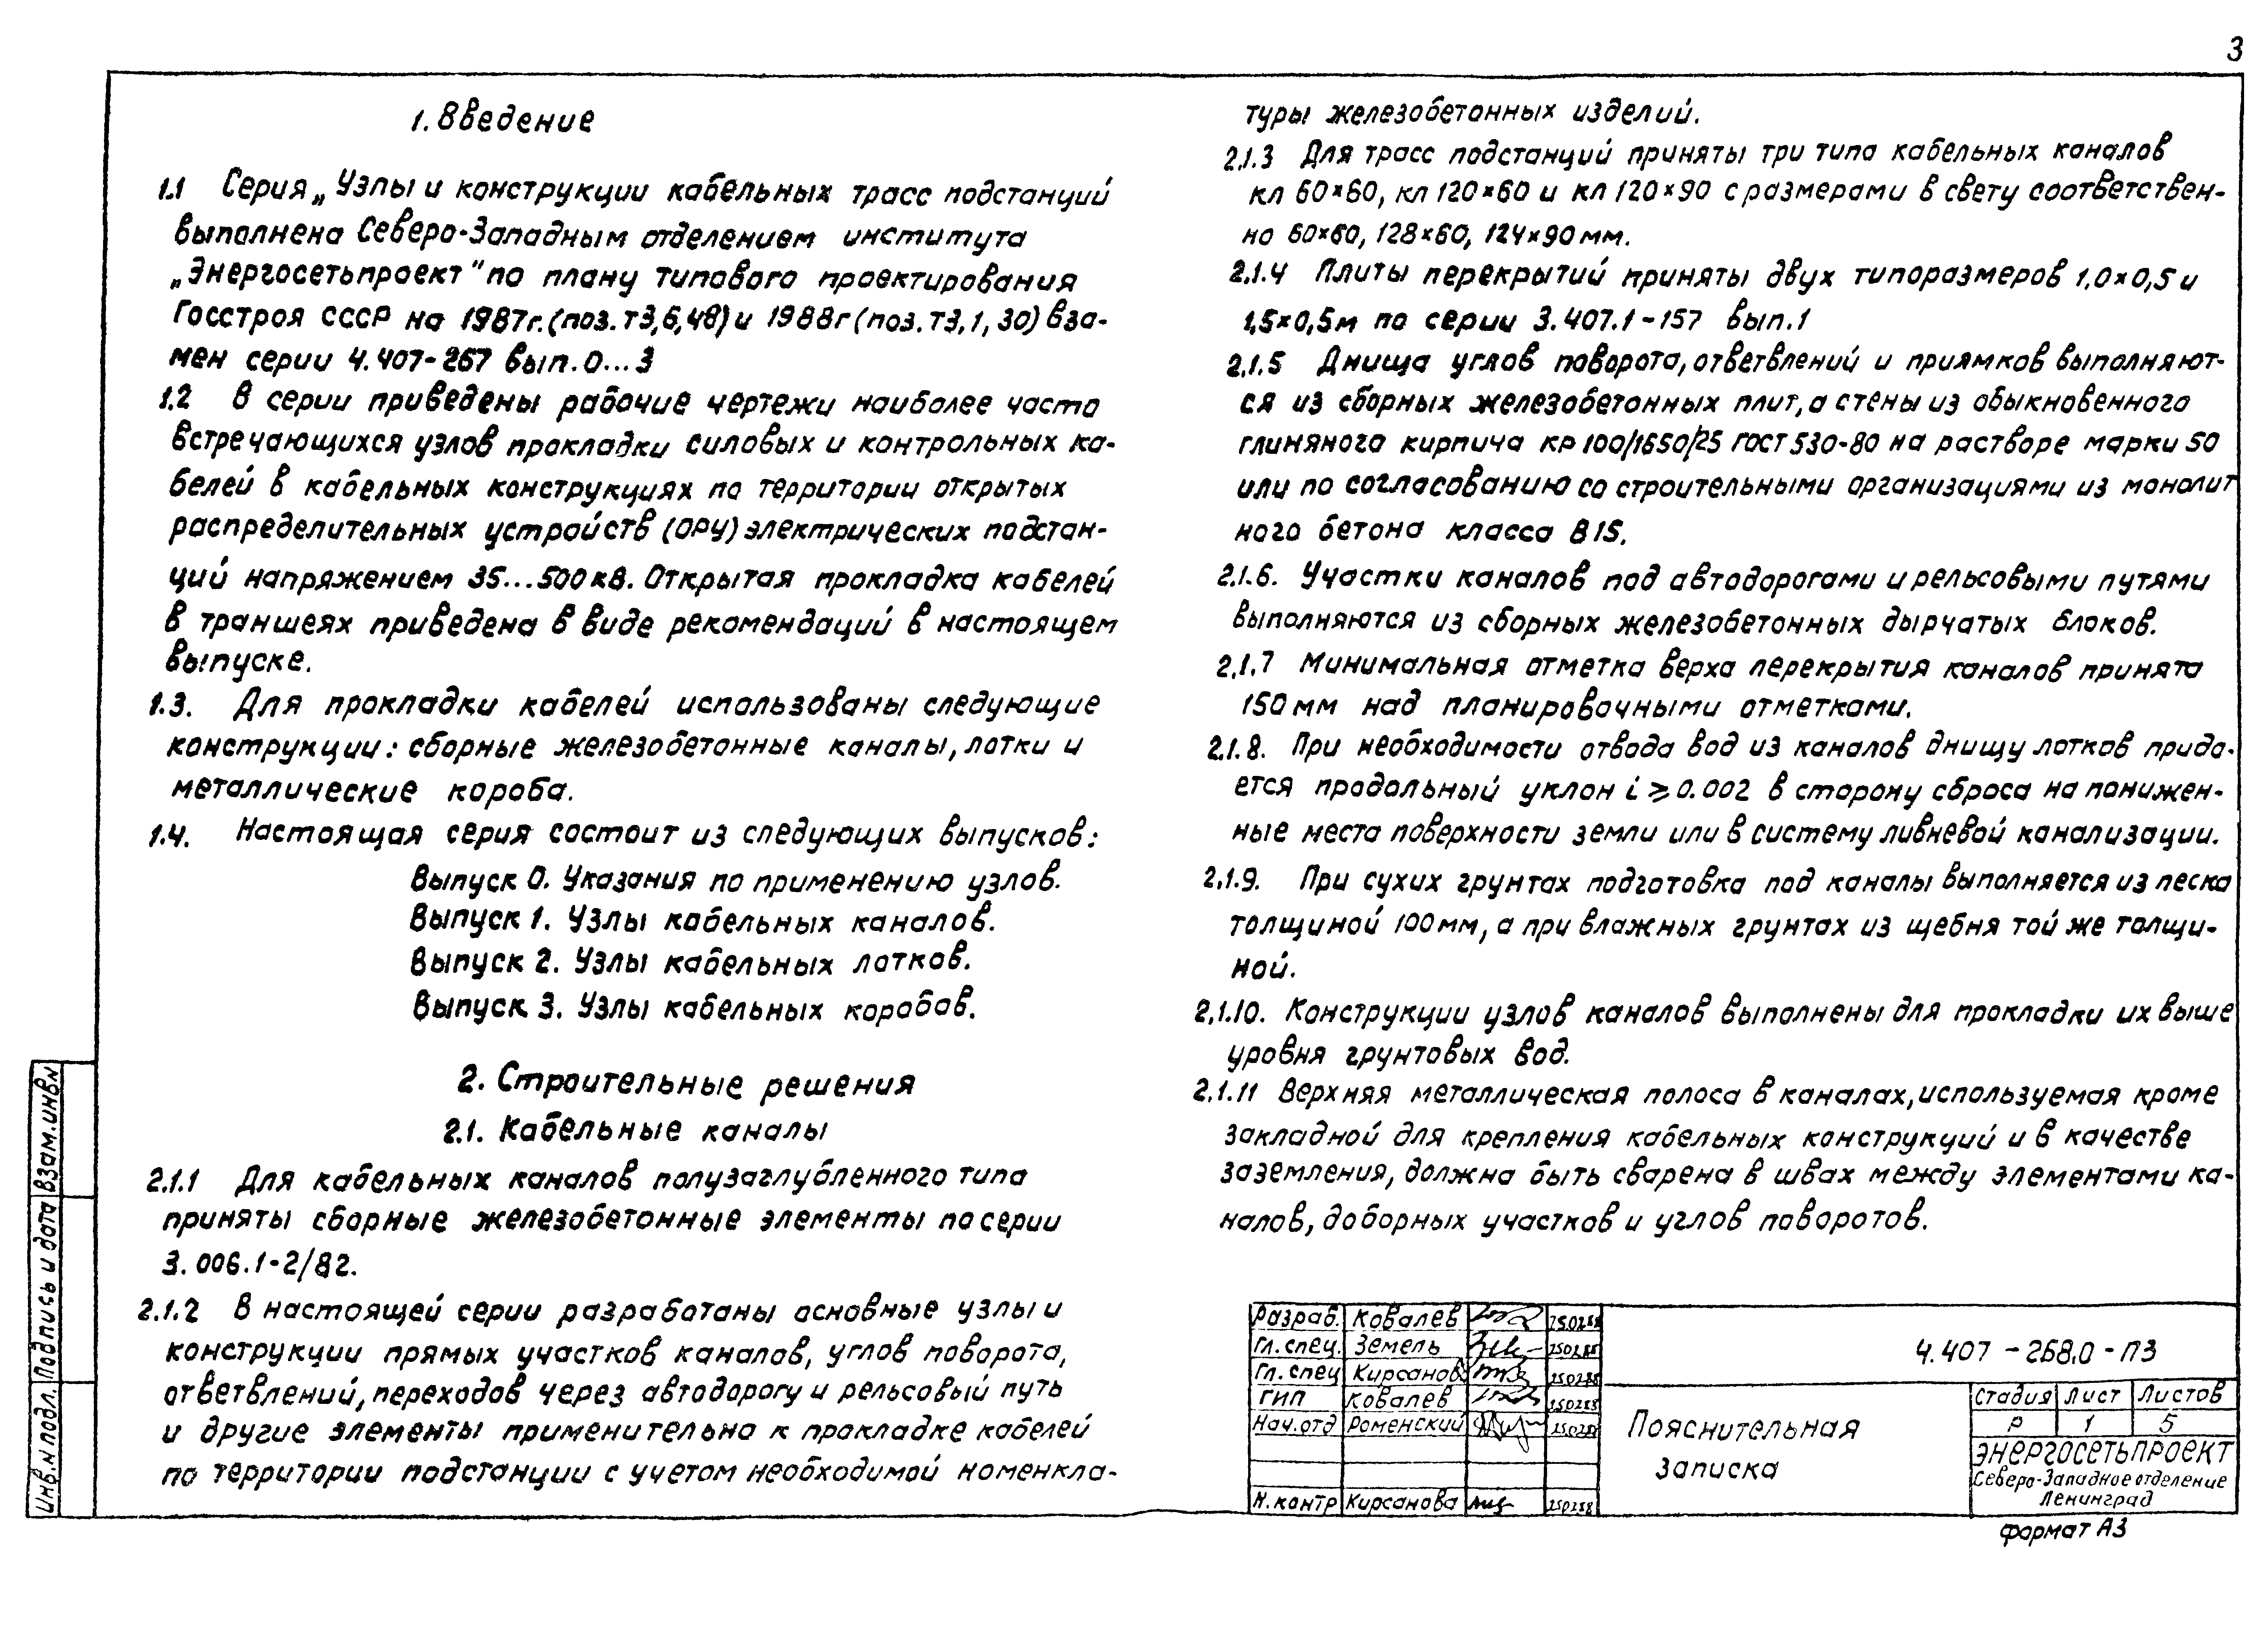 3
1. Введение
1.1 Серия „Узлы и конструкции кабельных трасс подстанций
выполнена Северо-Западным отделением института
„Энергосетьпроект" по плану типового проектирования
Госстроя СССР на 1987г. (поз. Т3,6,48) и 1988г (поз. Т3,1,30) вза-
мен серии 4.407-267 вып. 0...3
1.2 В серии приведены рабочие чертежи наиболее часто
встречающихся узлов прокладки силовых и контрольных ка-
белей в кабельных конструкциях по территории открытых
распределительных устройств (ОРУ) электрических подстан-
ций напряжением 35...500кВ. Открытая прокладка кабелей
в траншеях приведена в виде рекомендаций в настоящем
выпуске.
1.3. Для прокладки кабелей использованы следующие
конструкции: сборные железобетонные каналы, лотки и
металлические короба.
1.4. Настоящая серия состоит из следующих выпусков:
Выпуск 0. Указания по применению узлов.
Выпуск 1. Узлы кабельных каналов.
Выпуск 2. Узлы кабельных лотков.
Выпуск 3. Узлы кабельных коробов.
2. Строительные решения
2.1. Кабельные каналы
2.1.1 Для кабельных каналов полузаглубленного типа
приняты сборные железобетонные элементы по серии
3.006.1-2/82.
2.1.2 В настоящей серии разработаны основные узлы и
конструкции прямых участков каналов, углов поворота,
ответвлений, переходов через автодорогу и рельсовый путь
и другие элементы применительно к прокладке кабелей
по территории подстанции с учетом необходимой номенкла-
туры железобетонных изделий.
2.1.3 Для трасс подстанций приняты три типа кабельных каналов
кл 60×60, кл 120×60 и кл 120×90 с размерами в свету соответствен-
но 60×60, 128×60, 124×90 мм.
2.1.4 Плиты перекрытий приняты двух типоразмеров 1,0×0,5 и
1,5×0,5м по серии 3.407.1-157 вып.1
2.1.5 Днища углов поворота, ответвлений и приямков выполняют-
ся из сборных железобетонных плит, а стены из обыкновенного
глиняного кирпича КР 100/1650/25 ГОСТ 530-80 на растворе марки 50
или по согласованию со строительными организациями из монолит
ного бетона класса В15.
2.1.6. Участки каналов под автодорогами и рельсовыми путями
выполняются из сборных железобетонных дырчатых блоков.
2.1.7 Минимальная отметка верха перекрытия каналов принята
150 мм над планировочными отметками.
2.1.8. При необходимости отвода вод из каналов днищу лотков прида-
ется продольный уклон i ⩾ 0.002 в сторону сброса на понижен-
ные места поверхности земли или в систему ливневой канализации.
2.1.9. При сухих грунтах подготовка под каналы выполняется из песка
толщиной 100мм, а при влажных грунтах из щебня той же толщи-
ной.
2.1.10. Конструкции узлов каналов выполнены для прокладки их выше
уровня грунтовых вод.
2.1.11 Верхняя металлическая полоса в каналах, используемая кроме
закладной для крепления кабельных конструкций и в качестве
заземления, должна быть сварена в швах между элементами ка-
налов, доборных участков и углов поворотов.
Инв.N подл. Подпись и дата Взам.инвN
Разраб. Ковалев 250288
Гл.спец. Земель 250288
Гл.спец Кирсанов 250288
ГИП Ковалев 250288
Нач.отд Роменский 250288
Н.контр Кирсанова 250288
4.407-268.0-ПЗ
Пояснительная
записка
Стадия Лист Листов
Р 1 5
ЭНЕРГОСЕТЬПРОЕКТ
Северо-Западное отделение
Ленинград
формат А3